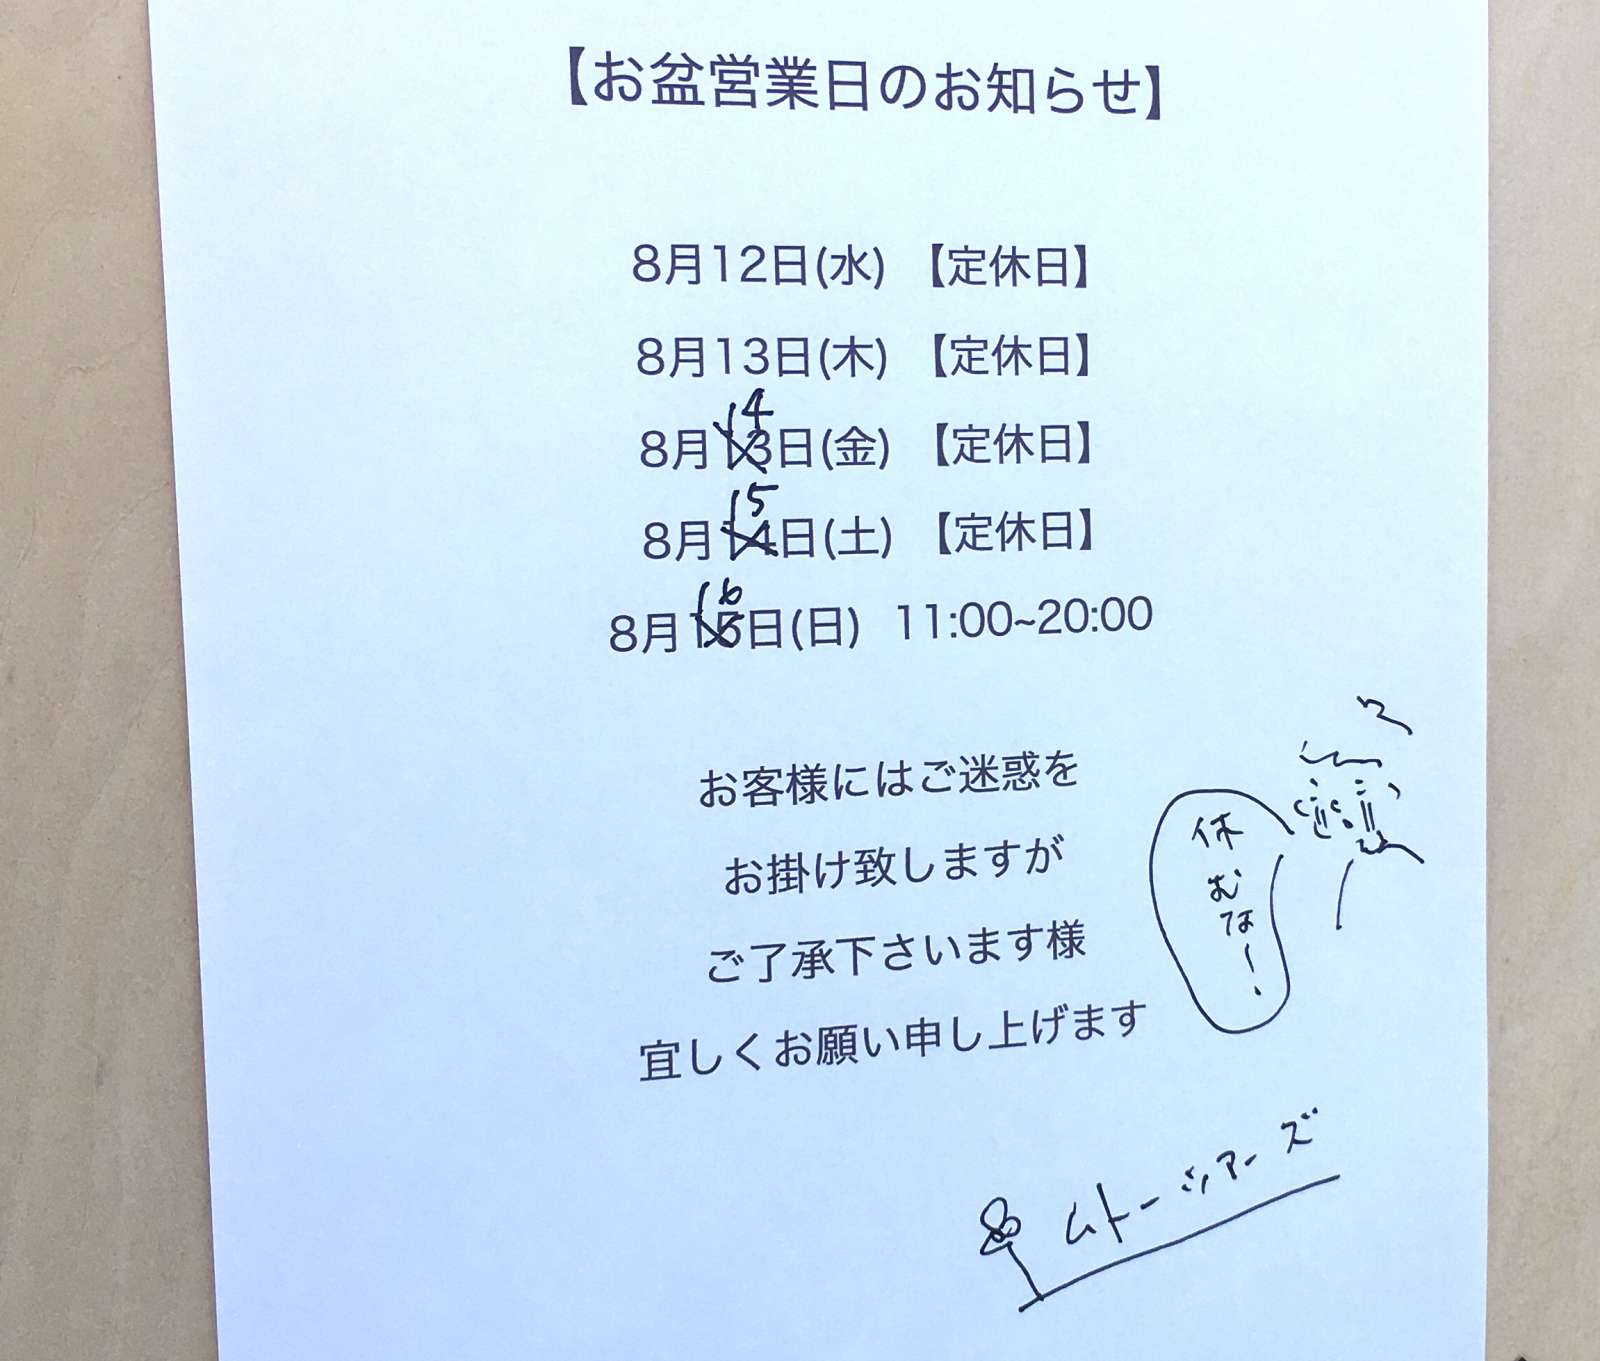 【お盆営業日のお知らせ】
8月12日(水) 【定休日】
8月13日(木) 【定休日】
14
8月13日(金) 【定休日】
15
8月14日(土) 【定休日】
16
8月15日(日) 11:00~20:00
お客様にはご迷惑を
お掛け致しますが
ご了承下さいます様
宜しくお願い申し上げます
休むなー!
ムトーシアーズ